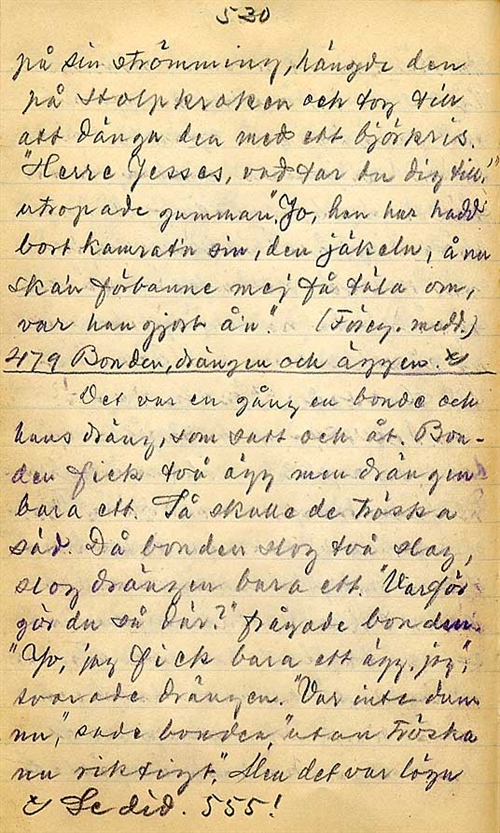 530
på sin strömming, hängde den
på stolpkroken och tog till
att dänga den med ett björkris.
"Herre Jesses, vad tar du dig till!"
utropade gumman. "Jo, han har hadd
bort kamrat'n sin, den jäkeln, å nu
ska'n förbanne mej få tala om,
var han gjort å'n." (Föreg. medd.)
479 Bonden, drängen och äggen. x)
Det var en gång en bonde och
hans dräng, som satt och åt. Bon-
den fick två ägg men drängen
bara ett. Så skulle de tröska
säd. Då bonden slog två slag,
slog drängen bara ett. "Varför
gör du så där?" frågade bonden.
"Jo, jag fick bara ett ägg, jag",
svarade drängen. "Var inte dum
nu", sade bonden, "utan tröska
nu riktigt." Men det var lögn
x) Se sid. 555!